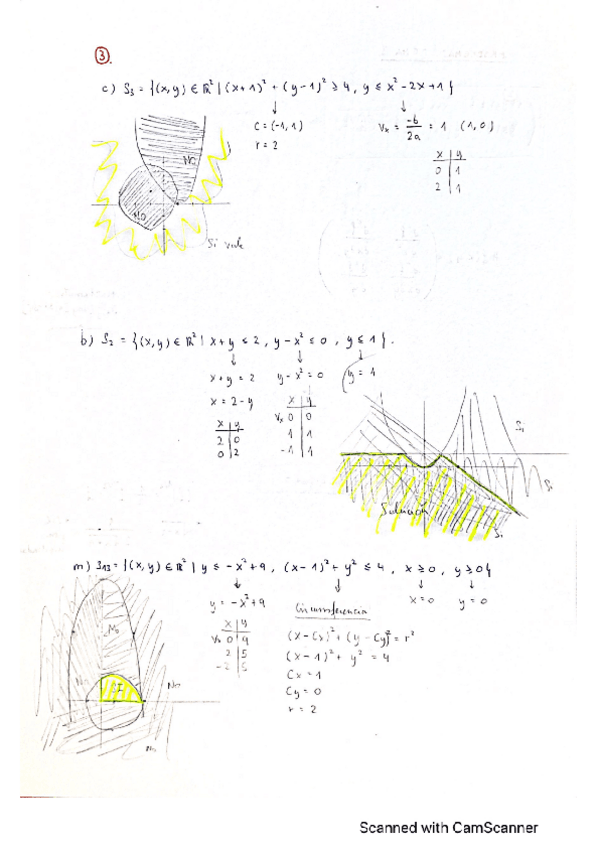 3.
c) S₃ = {(x,y) ∈ ℝ² | (x+1)² + (y-1)² ≥ 4, y ≤ x² - 2x + 1}
↓ ↓
C = (-1, 1)
r = 2
Vₓ = -b/2a = 1 (1, 0)
x | y
0 | 1
2 | 1
NO
NO
Si vale
b) S₂ = {(x,y) ∈ ℝ² | x+y ≤ 2, y - x² ≤ 0, y ≤ 1}.
↓ ↓ ↓
x + y = 2
x = 2 - y
x | y
2 | 0
0 | 2
y - x² = 0
x | y
Vₓ 0 | 0
1 | 1
-1 | 1
y = 1
Si
Si
Si
Solución
m) S₁₃ = {(x,y) ∈ ℝ² | y ≤ -x² + 9, (x-1)² + y² ≤ 4, x ≥ 0, y ≥ 0}
↓ ↓ ↓ ↓
y = -x² + 9
x | y
Vₓ 0 | 9
2 | 5
-2 | 5
Circunferencia
(x - Cx)² + (y - Cy)² = r²
(x - 1)² + y² = 4
Cx = 1
Cy = 0
r = 2
x = 0
y = 0
No
No
SI
No
No
Scanned with CamScanner